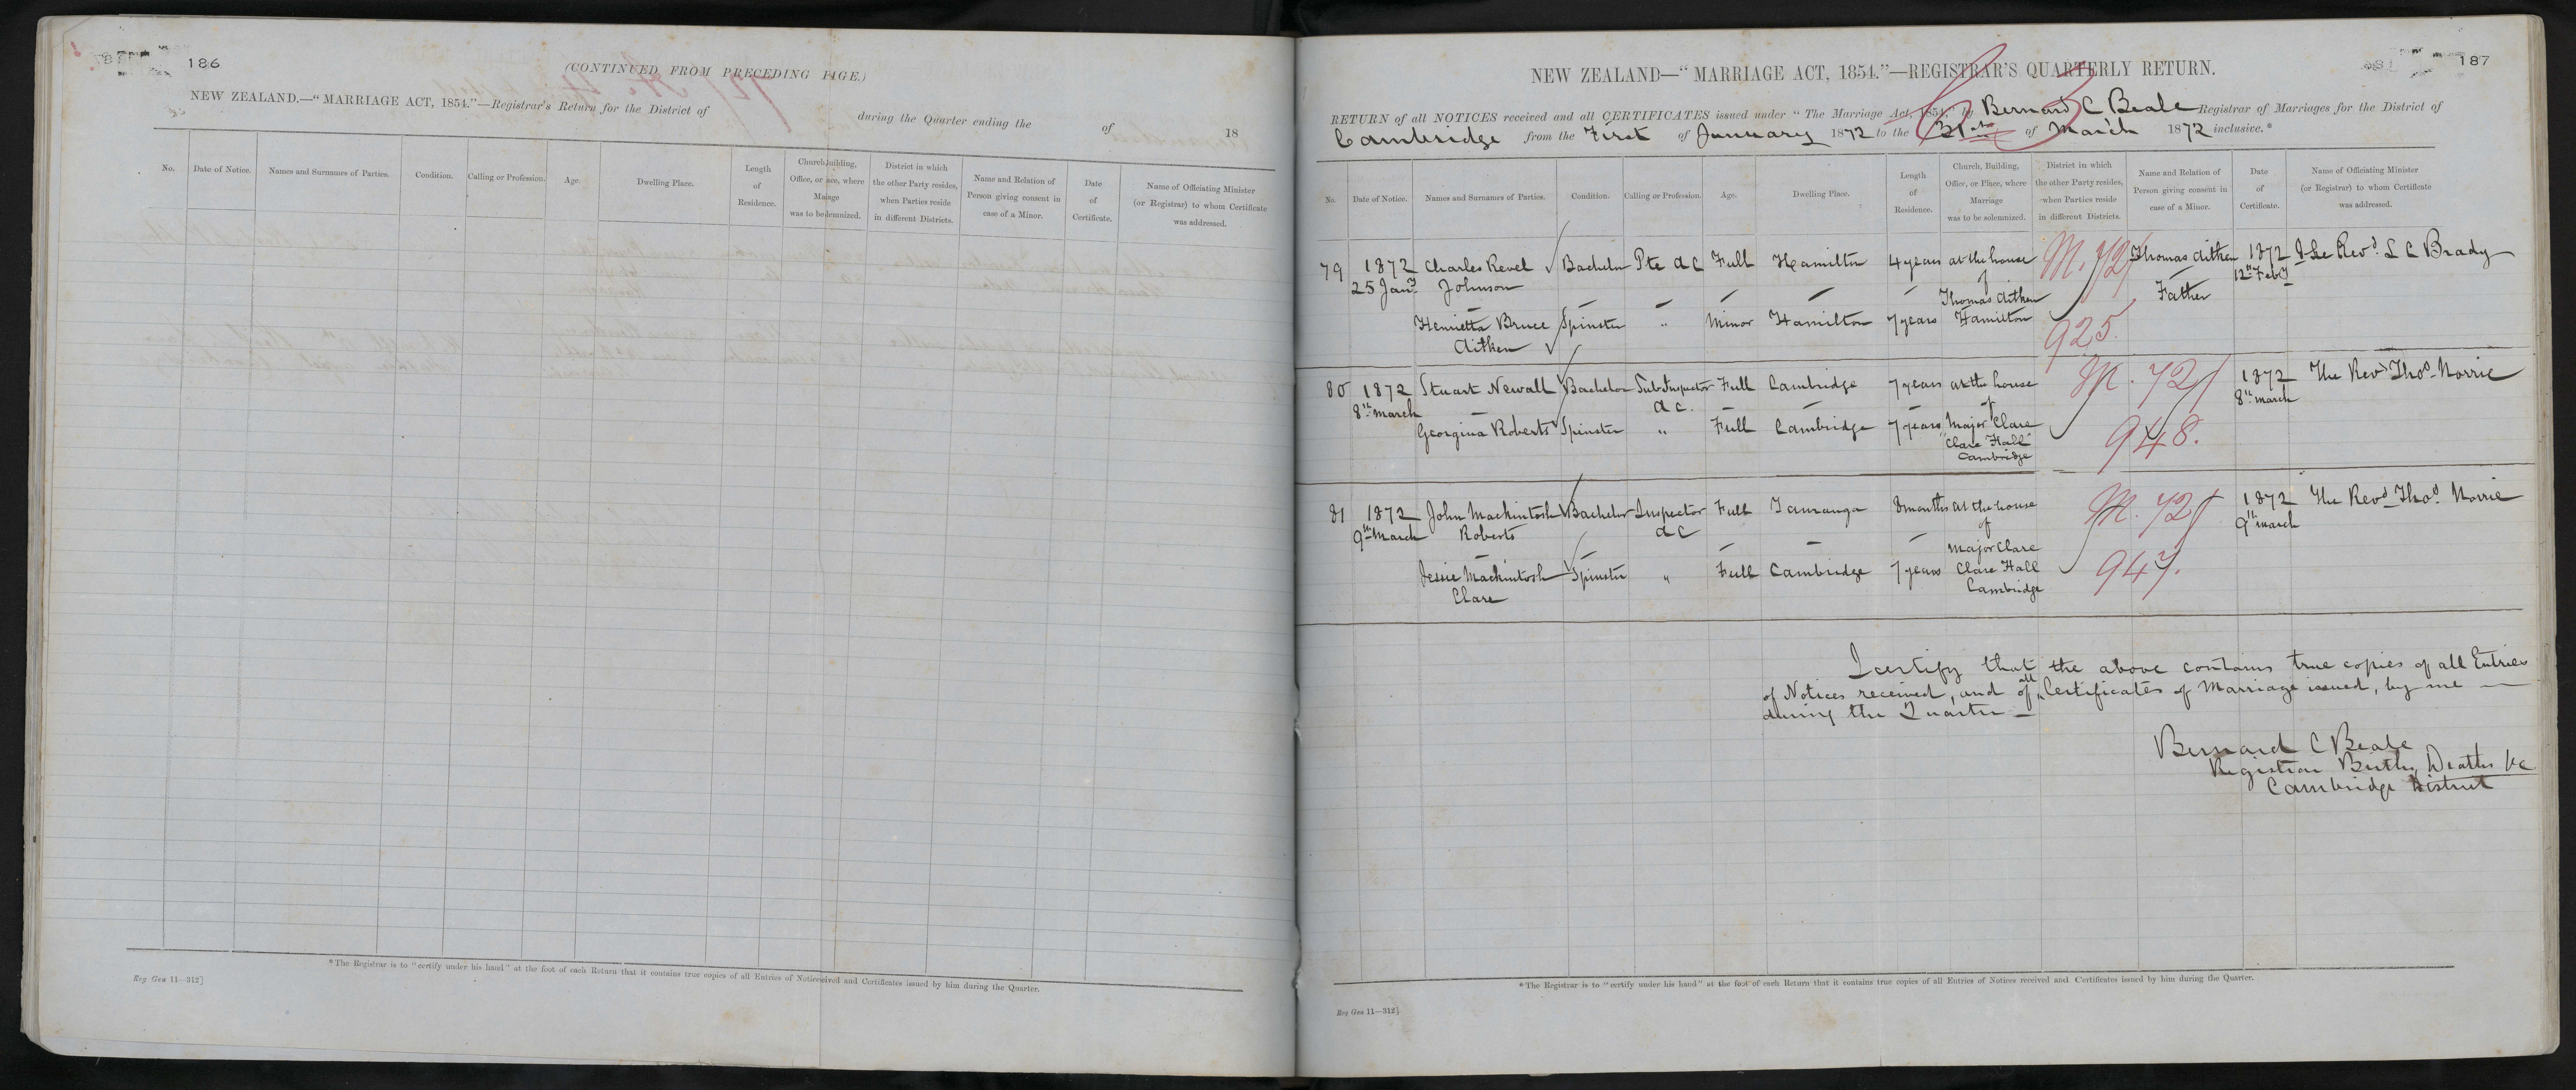 186
(CONTINUED FROM PRECEDING PAGE.)
NEW ZEALAND.—"MARRIAGE ACT, 1854."—Registrar's Return for the District of during the Quarter ending the of 18
No. Date of Notice. Names and Surnames of Parties. Condition. Calling or Profession. Age. Dwelling Place. Length of Residence. Church, Building, Office, or ace, where Maiage was to be lemnized. District in which the other Party resides, when Parties reside in different Districts. Name and Relation of Person giving consent in case of a Minor. Date of Certificate. Name of Officiating Minister (or Registrar) to whom Certificate was addressed.
*The Registrar is to "certify under his hand" at the foot of each Return that it contains true copies of all Entries of Notices eived and Certificates issued by him during the Quarter.
Reg Gen 11—312]
187
NEW ZEALAND—"MARRIAGE ACT, 1854."—REGISTRAR'S QUARTERLY RETURN.
RETURN of all NOTICES received and all CERTIFICATES issued under "The Marriage Act, 1854," by Bernard C Beale Registrar of Marriages for the District of
Cambridge from the First of January 1872 to the 31st of March 1872 inclusive.*
No. Date of Notice. Names and Surnames of Parties. Condition. Calling or Profession. Age. Dwelling Place. Length of Residence. Church, Building, Office, or Place, where Marriage was to be solemnized. District in which the other Party resides, when Parties reside in different Districts. Name and Relation of Person giving consent in case of a Minor. Date of Certificate. Name of Officiating Minister (or Registrar) to whom Certificate was addressed.
79 1872 Charles Revel Bachelor Pte A C Full Hamilton 4 years at the house M. 72/ Thomas Aitken 1872 The Revd. L C Brady
25 Jany. Johnson of Father 12th Feby
Thomas Aitken
Henrietta Bruce Spinster " Minor Hamilton 7 years Hamilton 925.
Aitken
80 1872 Stuart Newall Bachelor Sub Inspector Full Cambridge 7 years at the house M. 72/ 1872 The Revd Thos. Norrie
8th March A C. of 8th March
Georgina Roberts Spinster " Full Cambridge 7 years Major Clare 948.
"Clare Hall"
Cambridge
81 1872 John Mackintosh Bachelor Inspector Full Tauranga 8 months at the house M. 72/ 1872 The Revd Thos. Norrie
9th March Roberts A C of 9th March
Major Clare
Jessie Mackintosh Spinster " Full Cambridge 7 years Clare Hall 947.
Clare Cambridge
I certify that the above contains true copies of all Entries
of Notices received, and of all Certificates of Marriage issued, by me —
during the Quarter —
Bernard C Beale
Registrar Births, Deaths &c
Cambridge District
*The Registrar is to "certify under his hand" at the foot of each Return that it contains true copies of all Entries of Notices received and Certificates issued by him during the Quarter.
Reg Gen 11—312]